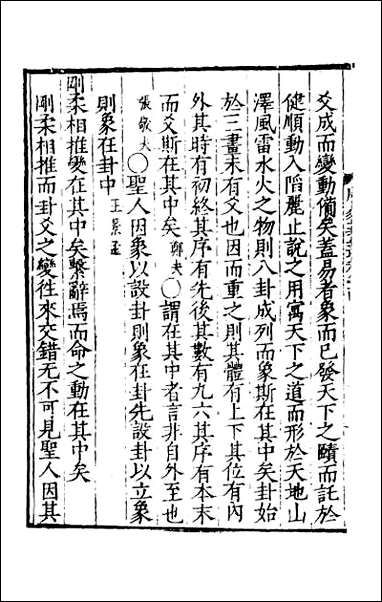 爻成而變動備矣蓋易者象而已發天下之賾而託於
健順動入陷麗止說之用寓天下之道而形於天地山
澤風雷水火之物則八卦成列而象斯在其中矣卦始
於三畫未有爻也因而重之則其體有上下其位有內
外其時有初終其序有先後其數有九六其序有本末
而爻斯在其中矣○謂在其中者言非自外至也
張敬夫○聖人因象以設卦則象在卦先設卦以立象
則象在卦中
剛柔相推變在其中矣繫辭焉而命之動在其中矣
剛柔相推而卦爻之變往來交錯无不可見聖人因其